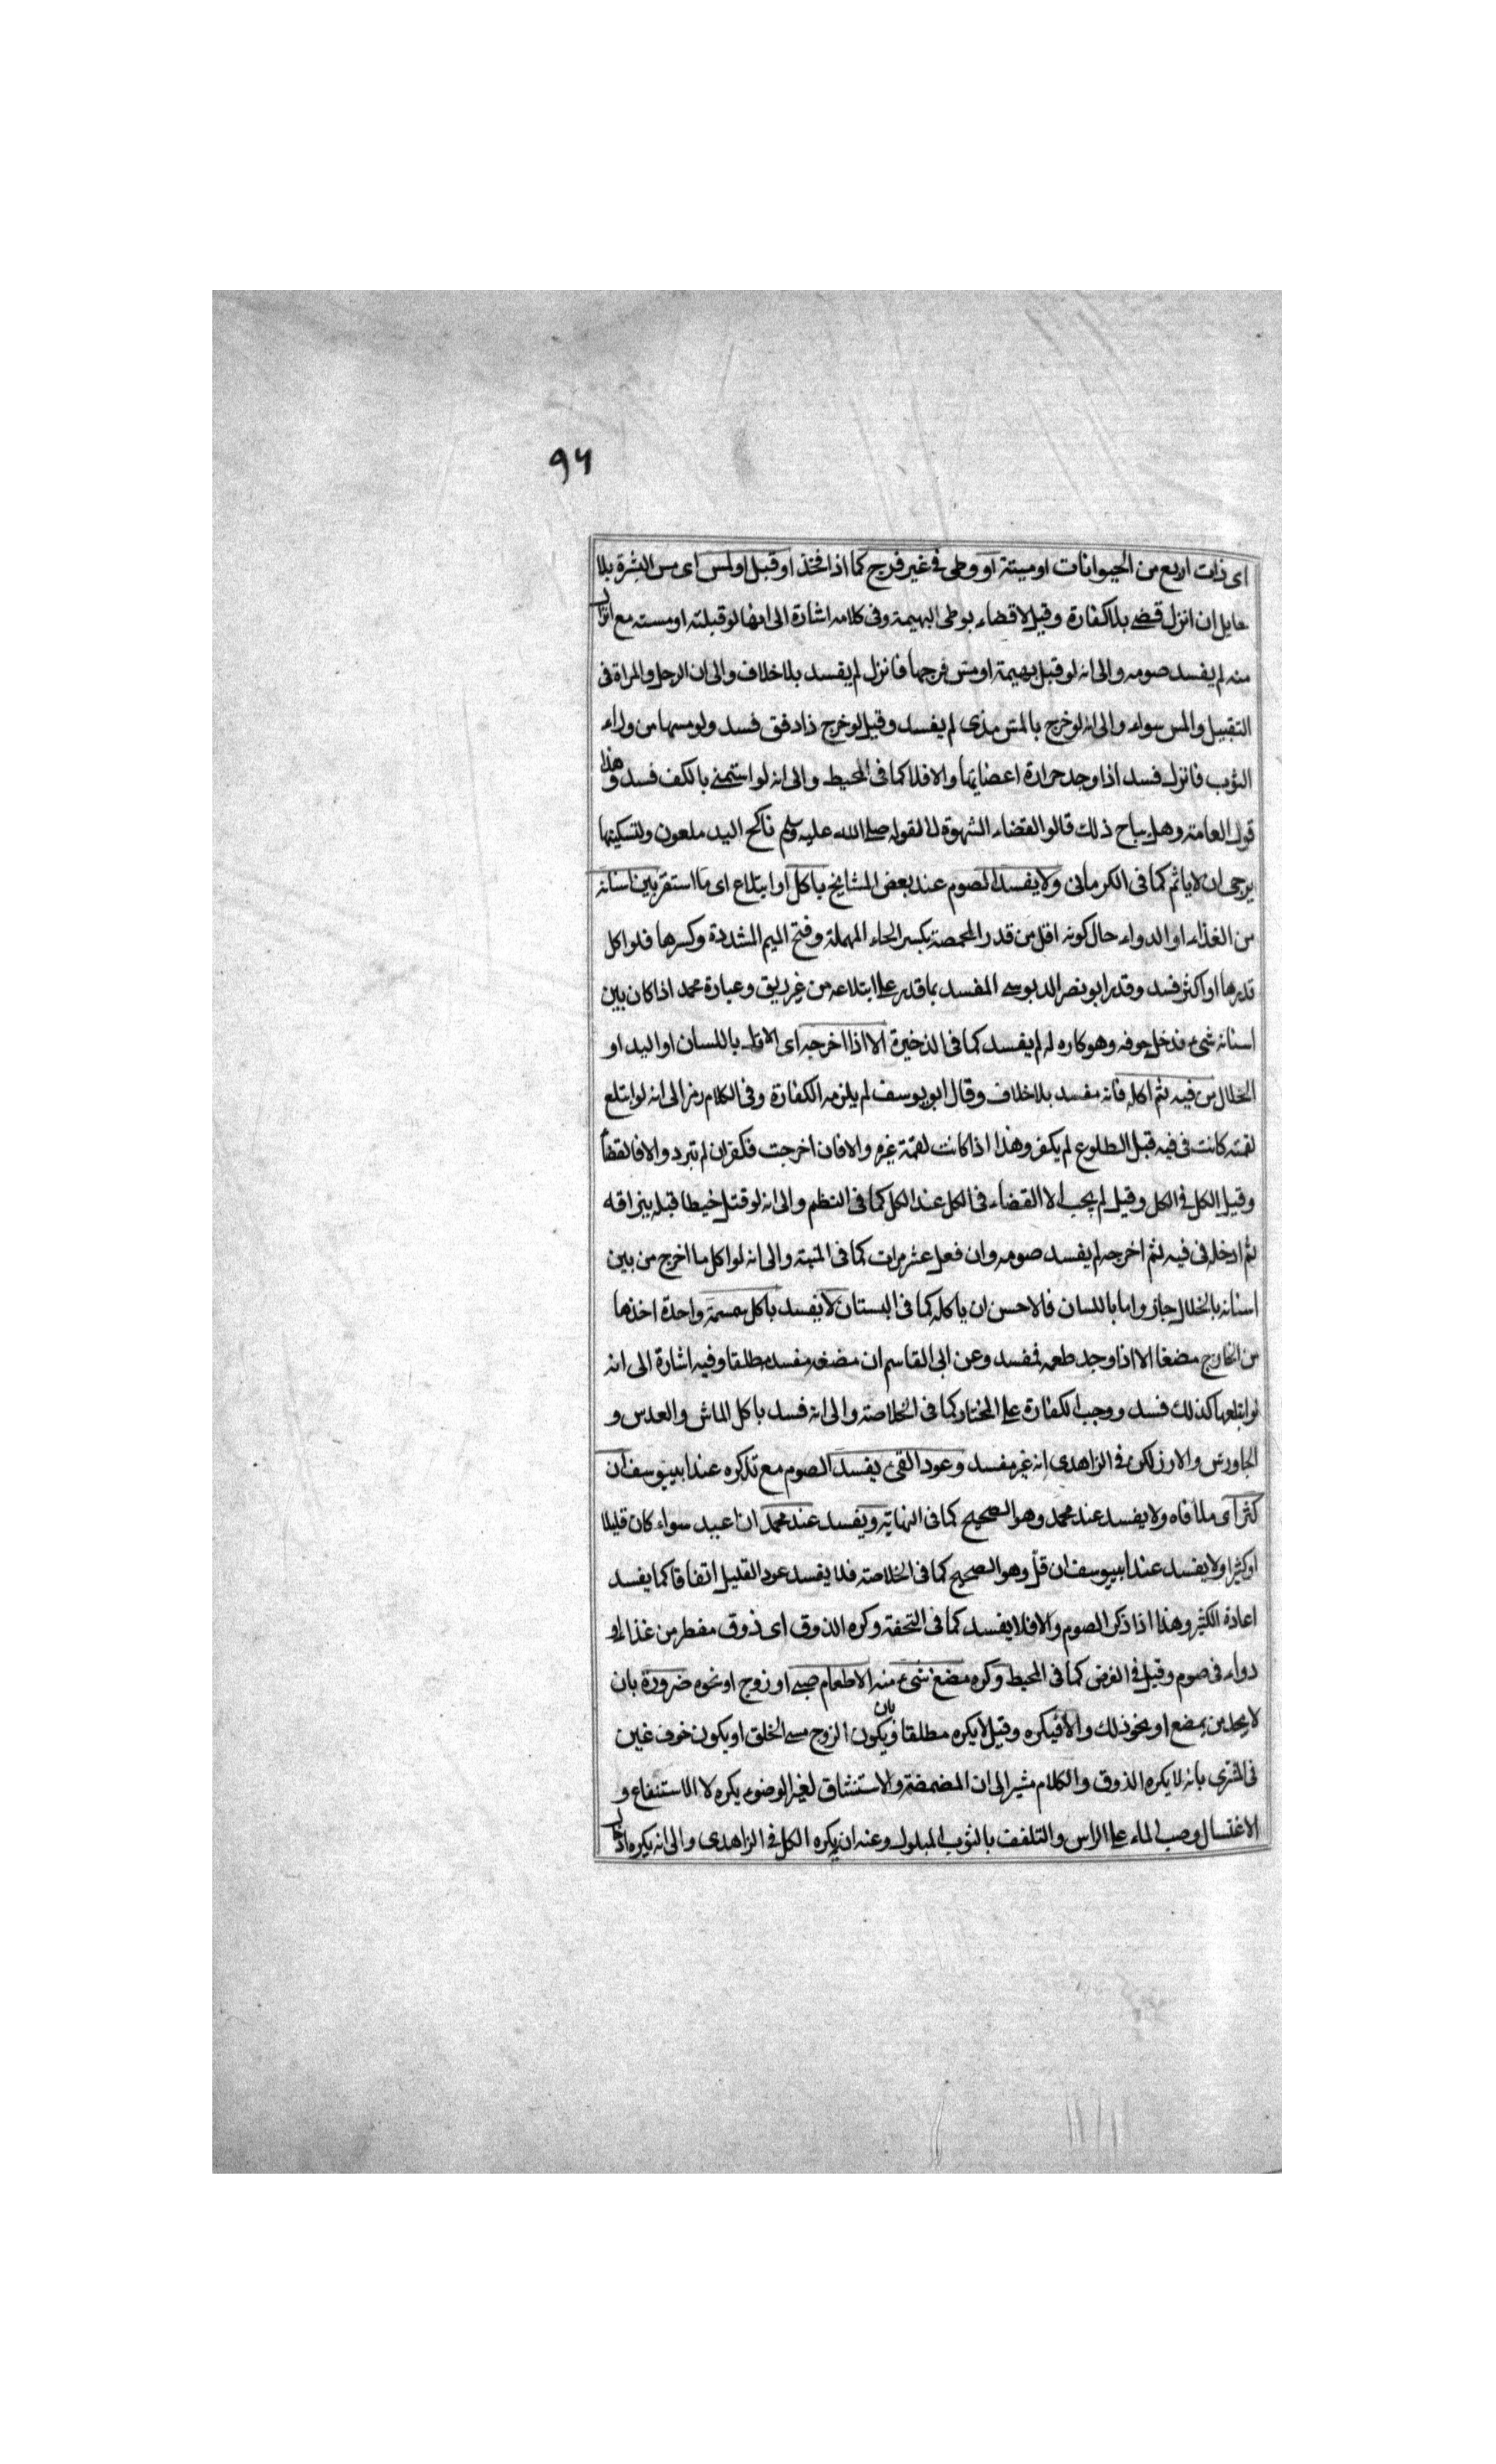 ٩٦
اى ذات اربع من الحيوانات او ميتة او وطى فى غير فرج كما اذا فخذ او قبل او لمس اى مس البشرة بلا
حايل ان انزل قضى بلا كفارة وقيل لا قضاء بوطى البهيمة وفى كلامه اشارة الى انها لو قبلته او مسته مع انزال
منه لم يفسد صومه والى انه لو قبل بهيمة او مس فرجها فانزل لم يفسد بلا خلاف والى ان الرجل والمراة فى
التقبيل والمس سواء والى انه لو خرج بالمس مذى لم يفسد وقيل لو خرج ذا دفق فسد ولو مسها من وراء
الثوب فانزل فسد اذا وجد حرارة اعضايها والا فلا كما فى المحيط والى انه لو استمنى بالكف فسد وهذا
قول العامة وهل يباح ذلك قالوا لقضاء الشهوة لا لقوله صلى الله عليه وسلم ناكح اليد ملعون ولتسكينها
يرجى ان لا ياثم كما فى الكرمانى ولا يفسد الصوم عند بعض المشايخ باكل او ابتلاع اى ما استقر بين اسنانه
من الغذاء او الدواء حال كونه اقل من قدر الحمصة بكسر الحاء المهملة وفتح الميم المشددة وكسرها فلو اكل
قدرها او اكثر فسد وقدر ابو نصر الدبوسى المفسد بما قدر على ابتلاعه من غير ريق وعبارة محمد اذا كان بين
اسنانه شىء فدخل جوفه وهو كاره له لم يفسد كما فى الذخيرة الا اذا اخرجه اى الاقل باللسان او اليد او
الخلال من فيه ثم اكله فانه مفسد بلا خلاف وقال ابو يوسف لم يلزمه الكفارة وفى الكلام رمز الى انه لو ابتلع
لقمة كانت فى فيه قبل الطلوع لم يكفر وهذا اذا كانت لقمة غيره والا فان اخرجت فكفر ان لم تبرد والا فالقضا
وقيل الكل فى الكل وقيل لم يجب الا القضاء فى الكل عند الكل كما فى النظم والى انه لو قتل خيطا قبله ببزاقه
ثم ادخله فى فيه ثم اخرجه لم يفسد صومه وان فعل عشر مرات كما فى المنية والى انه لو اكل ما اخرج من بين
اسنانه بالخلال جاز واما باللسان فالاحسن ان ياكله كما فى البستان لا يفسد باكل سمسمة واحدة اخذها
من الخارج مضغا الا اذا وجد طعمه فيفسد وعن ابى القاسم ان مضغه مفسد مطلقا وفيه اشارة الى انه
لو ابتلعها كذلك فسد ووجب الكفارة على المختار كما فى الخلاصة والى انه فسد باكل الماش والعدس و
الجاورس والارز لكن فى الزاهدى انه غير مفسد وعود القىء يفسد الصوم مع تذكره عند ابى يوسف ان
كثر اى ملأ فاه ولا يفسد عند محمد وهو الصحيح كما فى النهاية ويفسد عند محمد ان اعيد سواء كان قليلا
او كثيرا ولا يفسد عند ابى يوسف ان قل وهو الصحيح كما فى الخلاصة فلا يفسد عود القليل اتفاقا كما يفسد
اعادة الكثير وهذا اذا ذكر الصوم والا فلا يفسد كما فى التحفة وكره الذوق اى ذوق مفطر من غذاء او
دواء فى صوم وقيل فى الفرض كما فى المحيط وكره مضغ شىء منه الا طعام صبى او زوج او نحوه ضرورة بان
لا يجد من يمضغ او نحو ذلك والا فيكره وقيل لا يكره مطلقا وبان يكون الزوج سىء الخلق او يكون خوف غبن
فى المشترى بانه لا يكره الذوق والكلام مشير الى ان المضمضة والاستنشاق لغير الوضوء يكره لا الاستنقاع و
الاغتسال وصب الماء على الراس والتلفف بالثوب المبلول وعنه ان يكره الكل فى الزاهدى والى انه يكره ادخال